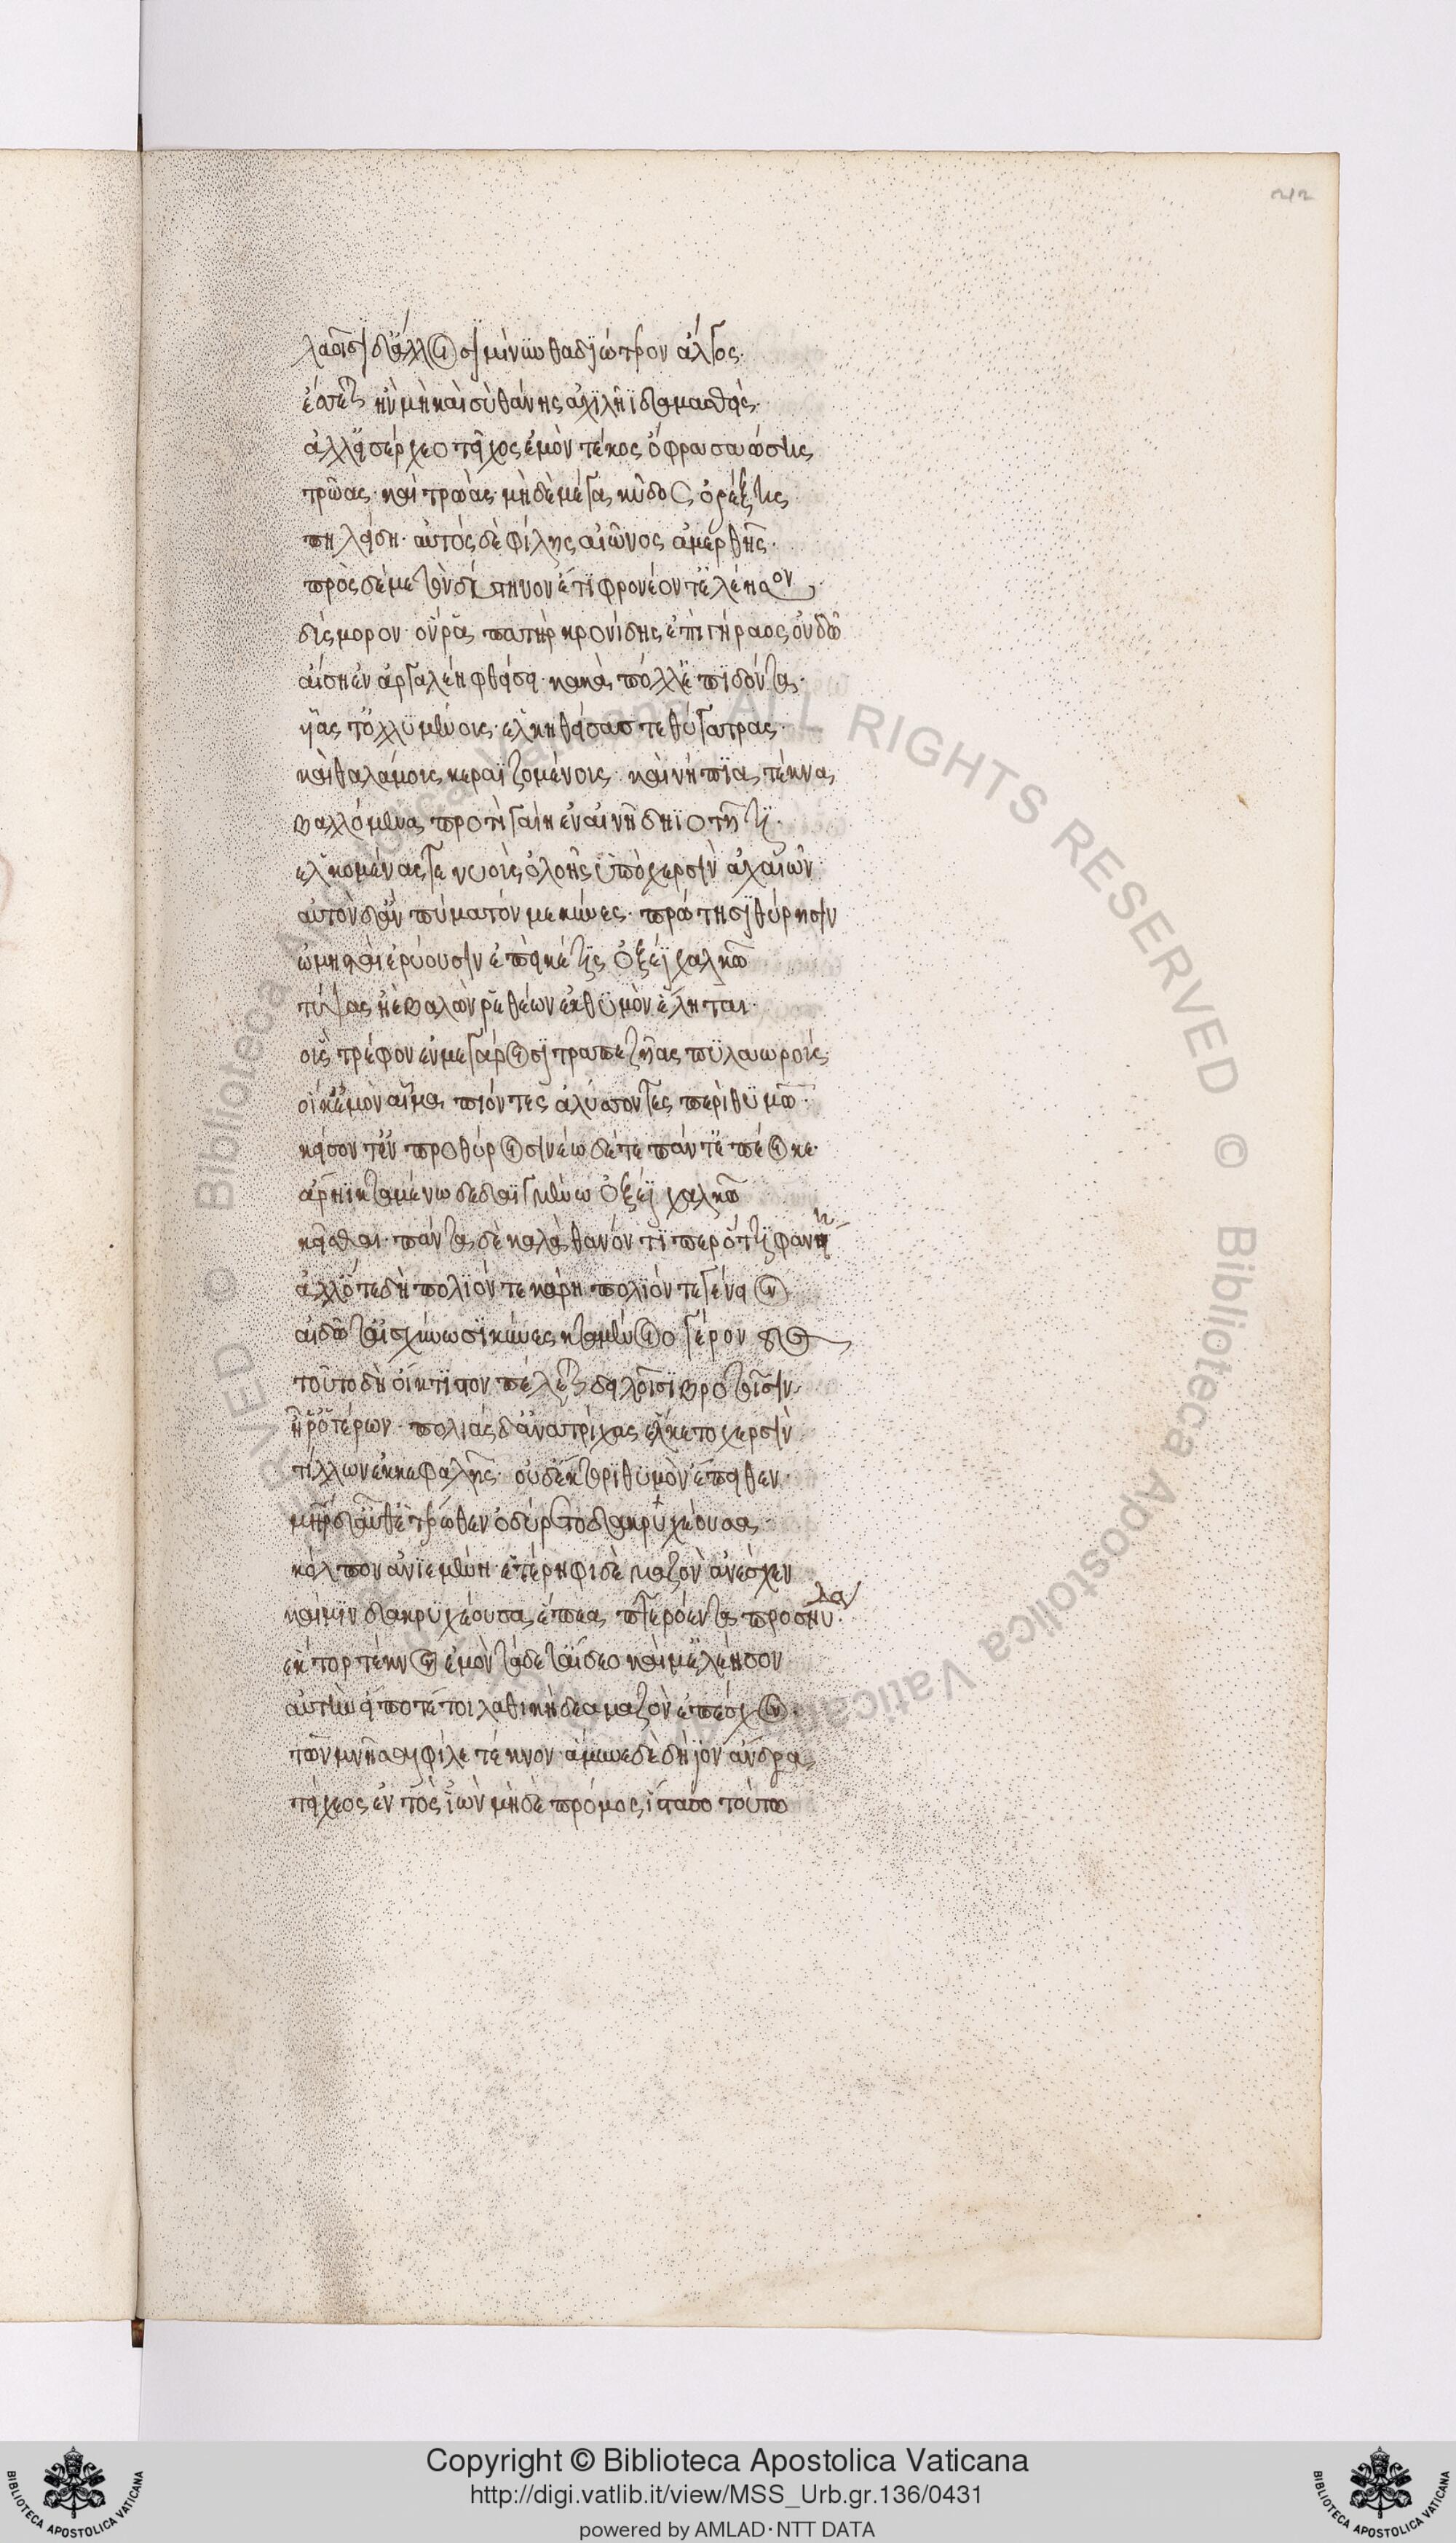 212
λαοῖσι δ' ἄλλοισι μίνυνθαδιώτερον ἄλγος
ἔσσεται ἢν μὴ καὶ σὺ θάνης ἀχιλῆϊ δαμασθείς.
ἀλλ' εἰσέρχεο τεῖχος ἐμὸν τέκος ὄφρα σαώσεις
τρῶας. καὶ τρωάς. μηδὲ μέγα κῦδος ὀρέξεις
πηλείδη. αὐτὸς δὲ φίλης αἰῶνος ἀμερθῆς.
πρὸς δέ με τὸν δύστηνον ἔτι φρονέοντ' ἐλέησον
δύσμορον ὅν ῥα πατὴρ κρονίδης ἐπὶ γήραος οὐδῶ
αἴση ἐν ἀργαλέη φθείσει. κακὰ πόλλ' ἐπιδόντα.
υἷας τ' ὀλλυμένους. ἑλκηθείσας τε θύγατρας.
καὶ θαλάμους κεραϊζομένους. καὶ νήπια τέκνα
βαλλόμενα προτὶ γαίη ἐν αἰνῆ δηϊοτῆτι.
ἑλκομένας τε νυοὺς ὀλοῆς ὑπὸ χερσὶν ἀχαιῶν
αὐτὸν δ' ἂν πύματόν με κύνες. πρώτησι θύρησιν
ὠμησταὶ ἐρύουσιν ἐπεί κέ τις ὀξέϊ χαλκῶ
τύψας ἠὲ βαλὼν ῥεθέων ἐκ θυμὸν ἕληται.
οὓς τρέφον ἐν μεγάροισι τραπεζῆας πυλαωρούς.
οἵ κ' ἐμὸν αἷμα πιόντες ἀλύσσοντες περὶ θυμῶ.
κείσοντ' ἐν προθύροισι νέω δέ τε πάντ' ἐπέοικε.
ἀρηϊκταμένω δεδαϊγμένω ὀξέϊ χαλκῶ
κεῖσθαι. πάντα δὲ καλὰ θανόντι περ ὅττι φανήη
ἀλλ' ὅτε δὴ πολιόν τε κάρη πολιόν τε γένειον
αἰδῶ τ' αἰσχύνωσι κύνες κταμένοιο γέροντος
τοῦτο δὴ οἴκτιστον πέλεται δειλοῖσι βροτοῖσιν.
ἦ ῥ' ὁ γέρων. πολιὰς δ' ἄνα τρίχας ἕλκετο χερσὶν
τίλλων ἐκ κεφαλῆς. οὐδ' ἕκτορι θυμὸν ἔπειθεν.
μήτηρ δ' αὖθ' ἑτέρωθεν ὀδύρετο δακρυχέουσα.
κόλπον ἀνιεμένη. ἑτέρηφι δὲ μαζὸν ἀνέσχεν
καί μιν δακρυχέουσα ἔπεα πτερόεντα προσηύδα.
ἕκτορ τέκνον ἐμὸν τάδε τ' αἴδεο καί μ' ἐλέησον
αὐτὴν εἴποτέ τοι λαθικηδέα μαζὸν ἐπέσχον.
τῶν μνῆσαι φίλε τέκνον ἄμυνε δὲ δήϊον ἄνδρα
τείχεος ἐντὸς ἰὼν μὴ δὲ πρόμος ἵστασο τούτω
Copyright © Biblioteca Apostolica Vaticana
http://digi.vatlib.it/view/MSS_Urb.gr.136/0431
powered by AMLAD·NTT DATA